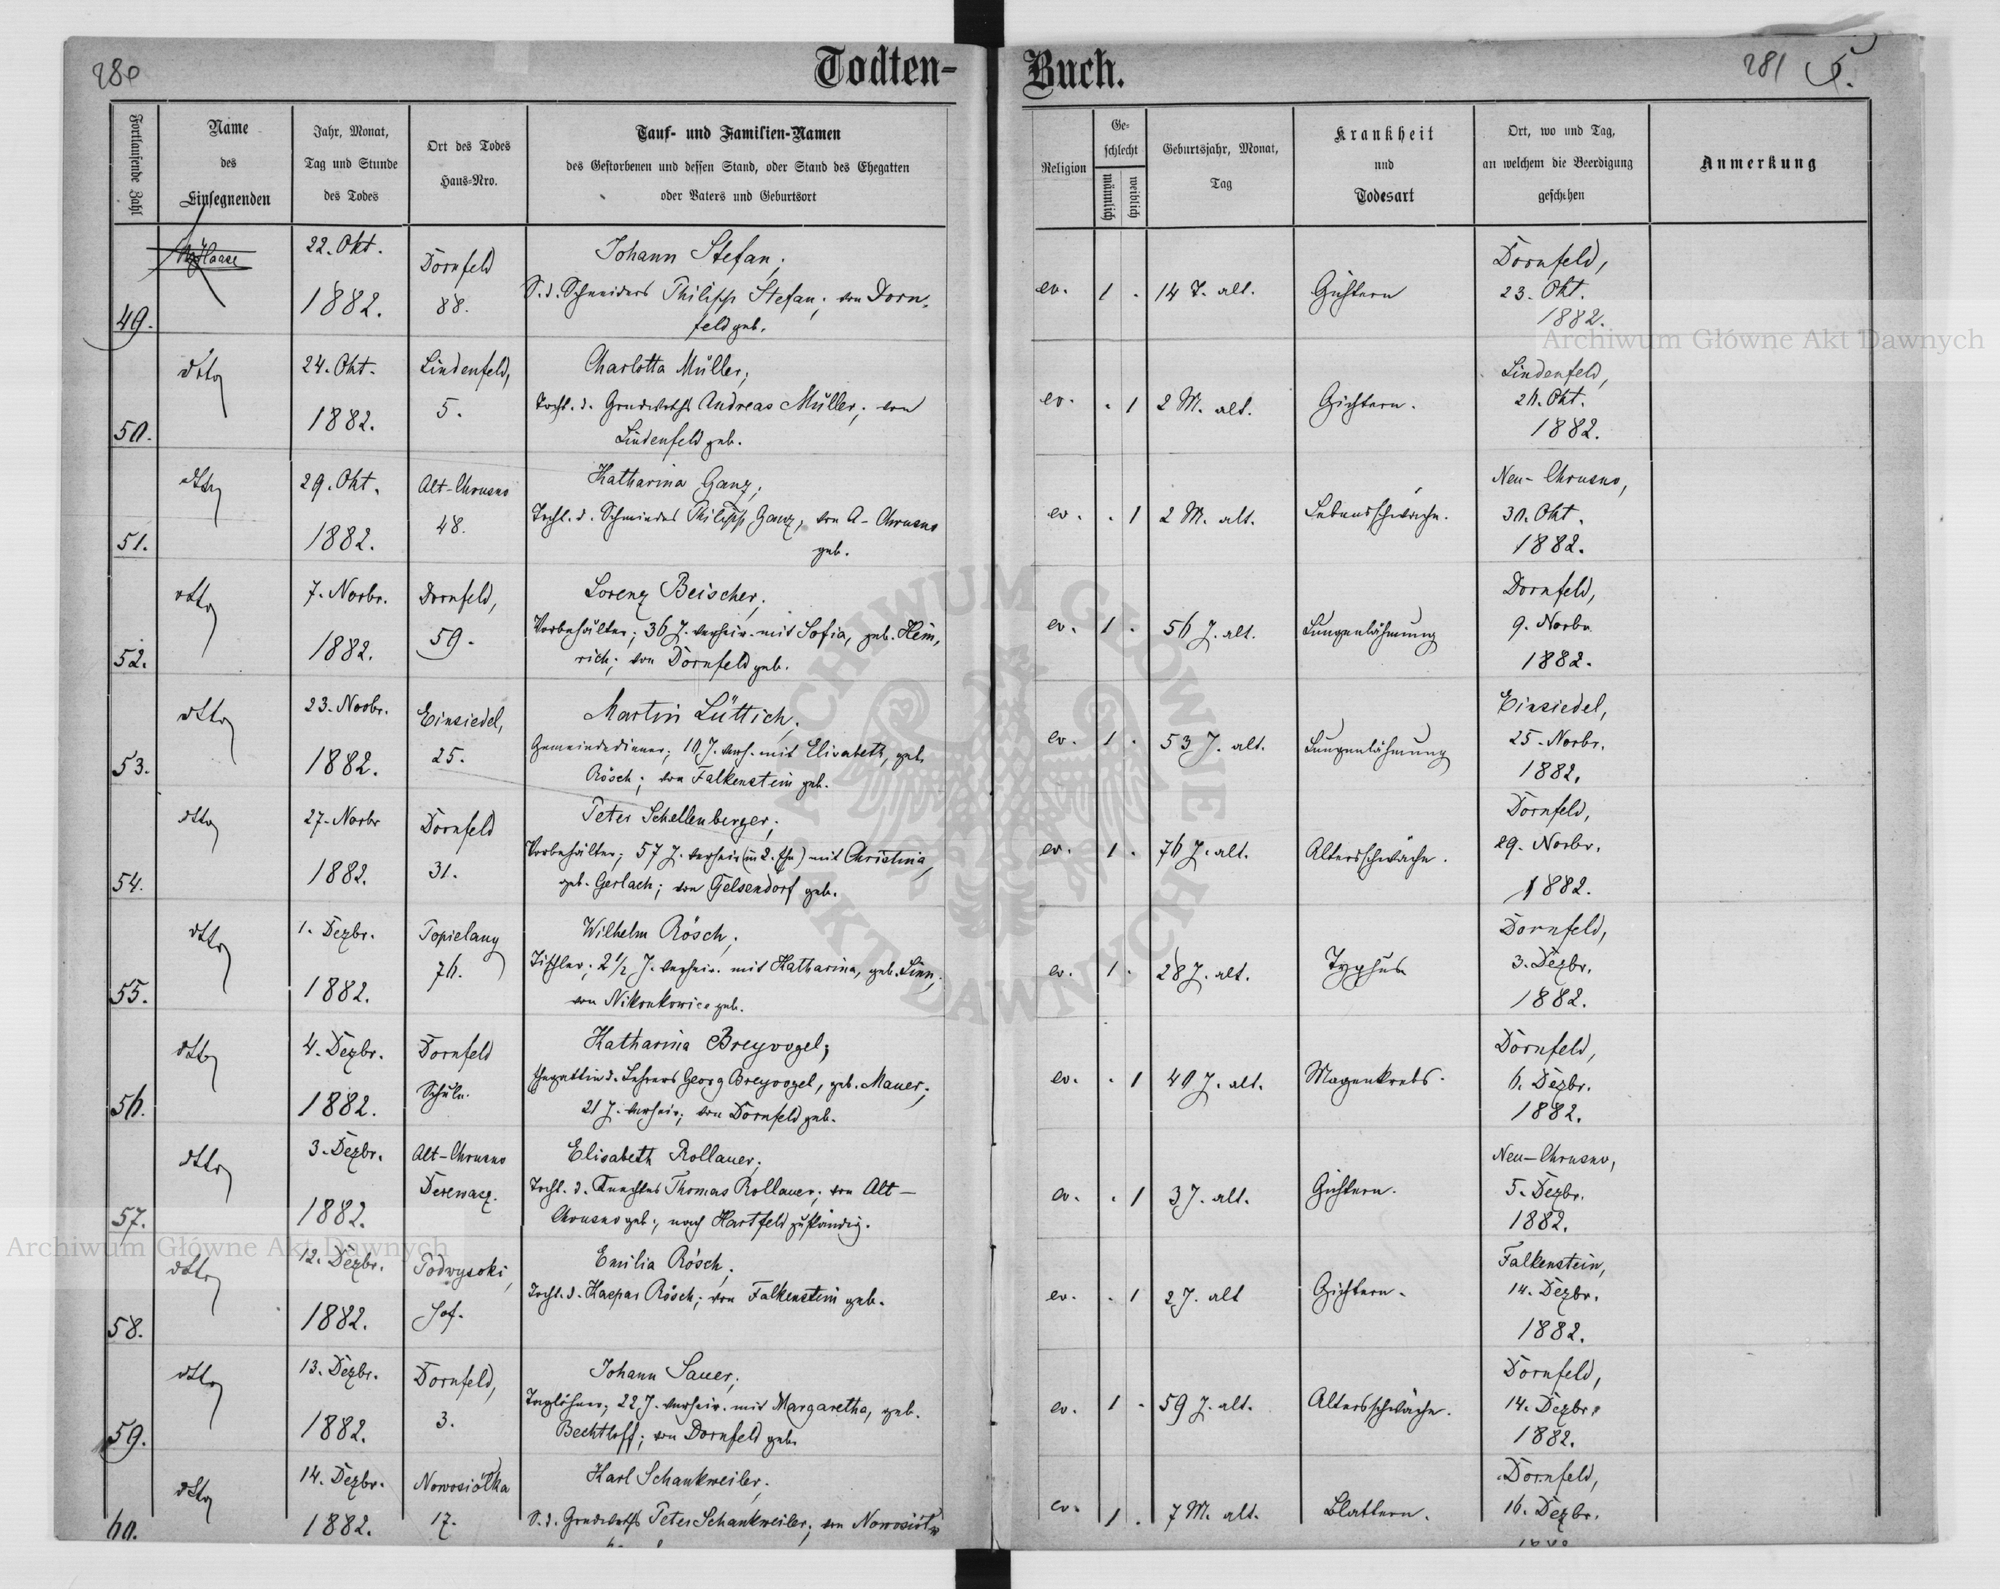 280
Todten-
Buch.
281
5.
Fortlaufende Zahl
Name
des
Einsegnenden
Jahr, Monat,
Tag und Stunde
des Todes
Ort des Todes
Haus-Nro.
Tauf- und Familien-Namen
des Gestorbenen und dessen Stand, oder Stand des Ehegatten
oder Vaters und Geburtsort
Religion
Ge-
schlecht
männlich
weiblich
Geburtsjahr, Monat,
Tag
Krankheit
und
Todesart
Ort, wo und Tag,
an welchem die Beerdigung
geschehen
Anmerkung
49.
Haase
22. Okt.
1882.
Dornfeld
88.
Johann Stefan;
S. d. Schneiders Philipp Stefan; von Dorn-
feld geb.
ev.
1 .
14 T. alt.
Gichtern
Dornfeld,
23. Okt.
1882.
50.
dtto
24. Okt.
1882.
Lindenfeld,
5.
Charlotta Müller;
Tocht. d. Grundwirths Andreas Müller; von
Lindenfeld geb.
ev.
. 1
2 M. alt.
Gichtern.
Lindenfeld,
26. Okt.
1882.
51.
dtto
29. Okt.
1882.
Alt-Chrusno
48.
Katharina Ganz;
Tocht. d. Schmiedes Philipp Ganz, von A-Chrusno
geb.
ev.
. 1
2 M. alt.
Lebensschwäche.
Neu-Chrusno,
30. Okt.
1882.
52.
dtto
7. Novbr.
1882.
Dornfeld,
59.
Lorenz Beischer;
Vorbehälter; 36 J. verheir. mit Sofia, geb. Hein-
rich; von Dornfeld geb.
ev.
1 .
56 J. alt.
Lungenlähmung
Dornfeld,
9. Novbr
1882.
53.
dtto
23. Novbr.
1882.
Einsiedel,
25.
Martin Lüttich;
Gemeindediener; 10 J. verh. mit Elisabeth, geb.
Rösch; von Falkenstein geb.
ev.
1 .
53 J. alt.
Lungenlähmung
Einsiedel,
25. Novbr.
1882.
54.
dtto
27. Novbr
1882.
Dornfeld
31.
Peter Schellenberger;
Vorbehälter; 57 J. verheir (in 2. Ehe) mit Christina,
geb. Gerlach; von Gelsendorf geb.
ev.
1 .
76 J. alt.
Altersschwäche.
Dornfeld,
29. Novbr.
1882.
55.
dtto
1. Dezbr.
1882.
Topielany
76.
Wilhelm Rösch;
Tischler; 2 1/2 J. verheir. mit Katharina, geb. Linn;
von Nikonkowice geb.
ev.
1 .
28 J. alt.
Typhus
Dornfeld,
3. Dezbr.
1882.
56.
dtto
4. Dezbr.
1882.
Dornfeld
Schule.
Katharina Breyvogel;
Ehegattin d. Lehrers Georg Breyvogel, geb. Mauer;
21 J. verheir; von Dornfeld geb.
ev.
. 1
40 J. alt.
Magenkrebs.
Dornfeld,
6. Dezbr.
1882.
57.
dtto
3. Dezbr.
1882.
Alt-Chrusno
Derewacz.
Elisabeth Rollauer;
Tocht. d. Knechtes Thomas Rollauer; von Alt-
Chrusno geb; nach Hartfeld zuständig.
ev.
. 1
3 J. alt.
Gichtern.
Neu-Chrusno,
5. Dezbr.
1882.
58.
dtto
12. Dezbr.
1882.
Podwysoki,
Hof.
Emilia Rösch;
Tocht. d. Kaspar Rösch; von Falkenstein geb.
ev.
. 1
2 J. alt
Gichtern.
Falkenstein,
14. Dezbr.
1882.
59.
dtto
13. Dezbr.
1882.
Dornfeld,
3.
Johann Sauer;
Taglöhner; 22 J. verheir. mit Margaretha, geb.
Bechtloff; von Dornfeld geb.
ev.
1 .
59 J. alt.
Altersschwäche.
Dornfeld,
14. Dezbr.
1882.
60.
dtto
14. Dezbr.
1882.
Nowosiółka
17.
Karl Schankweiler;
S. d. Grundwirths Peter Schankweiler; von Nowosiół
ev.
1 .
7 M. alt.
Blattern.
Dornfeld,
16. Dezbr.
Archiwum Główne Akt Dawnych
Archiwum Główne Akt Dawnych
ARCHIWUM GŁÓWNE AKT DAWNYCH